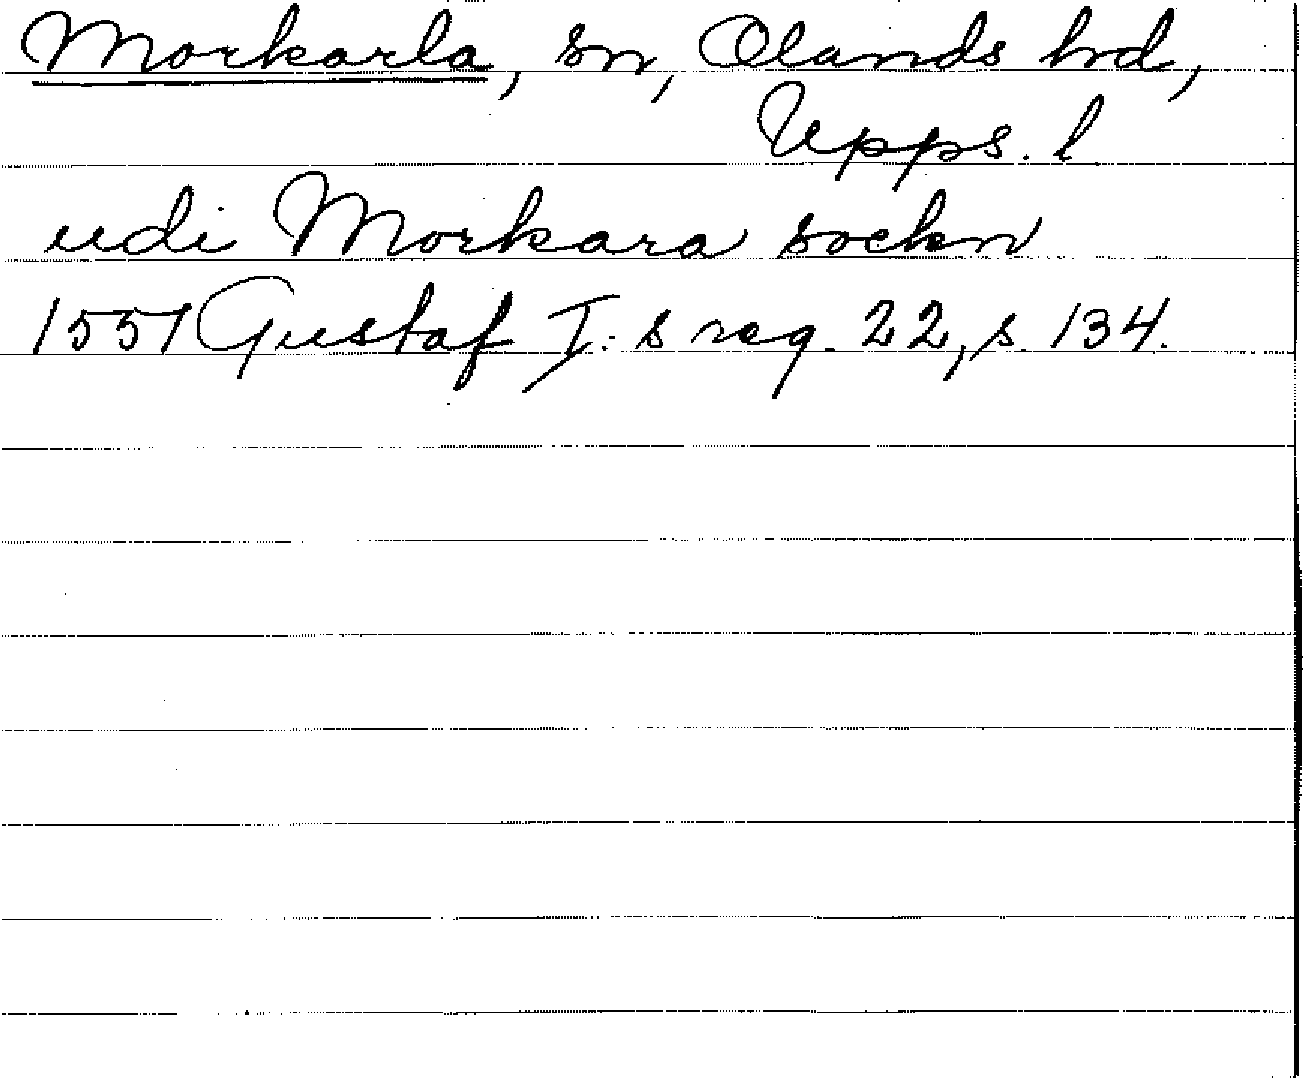 Morkarla, sn, Olands hd,
Upps. l
udi Morkara sockn
1551 Gustaf I: s reg. 22, s. 134.